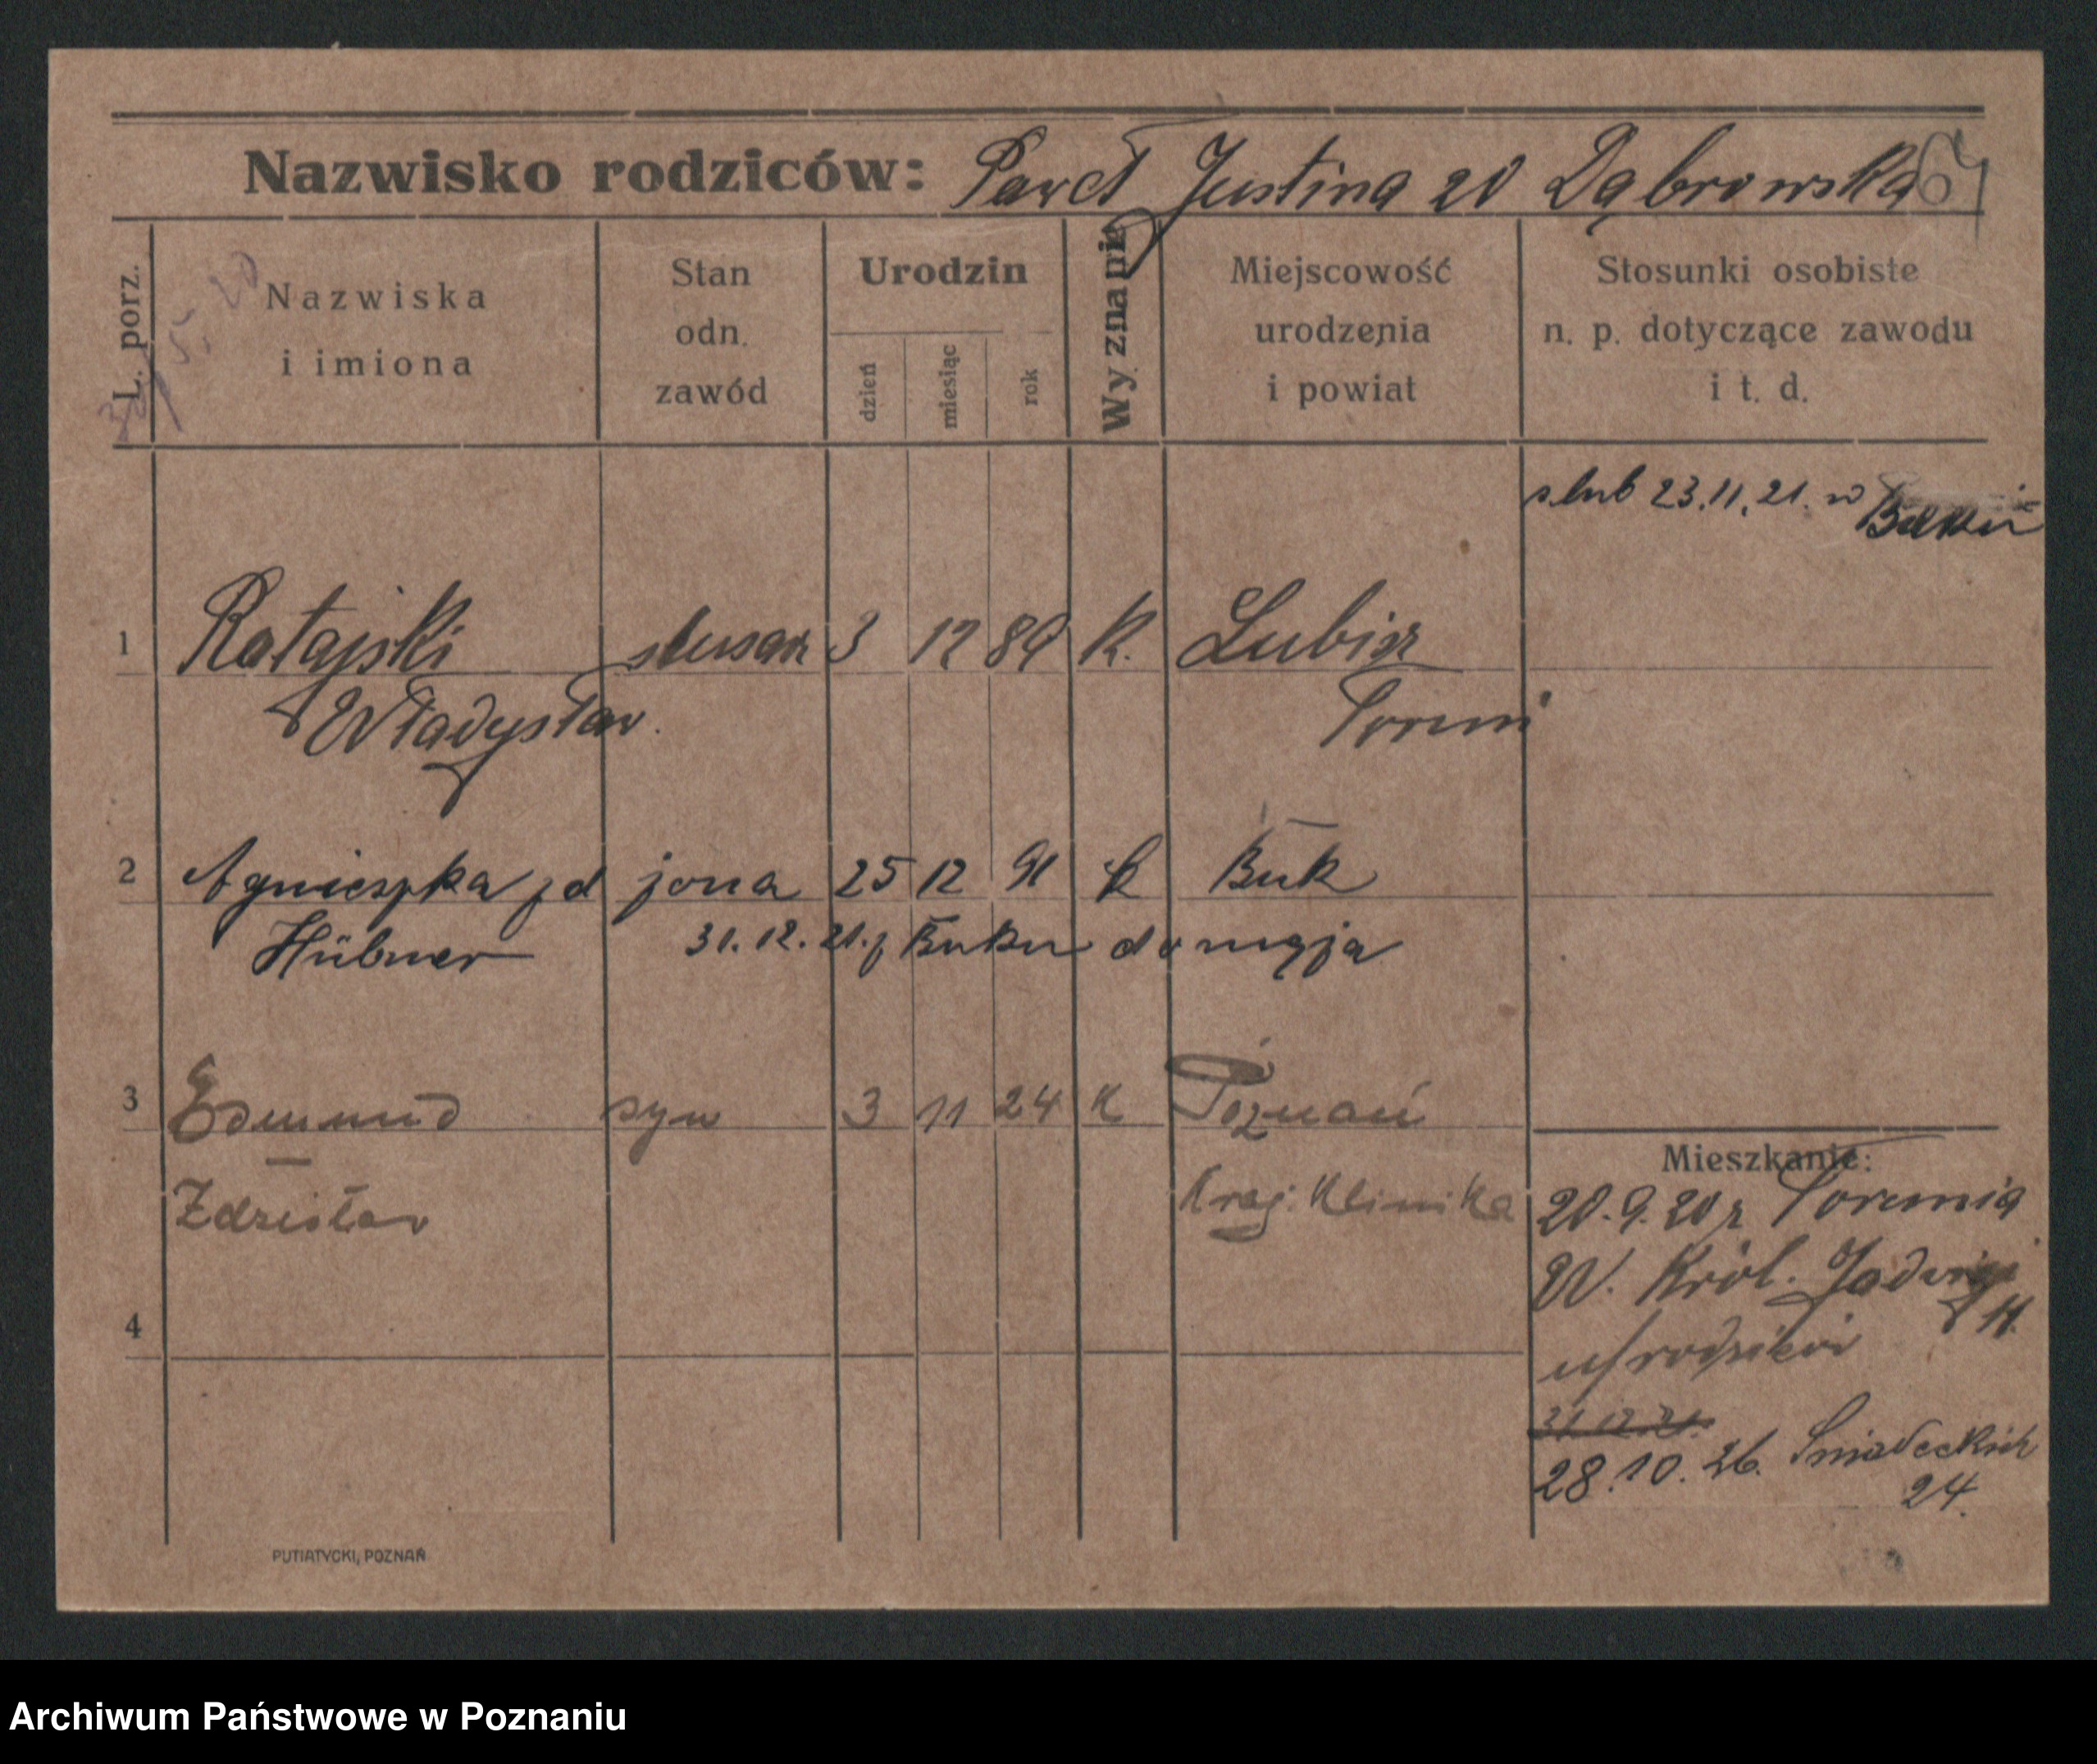 Nazwisko rodziców: Paweł Justina zd Dąbrowska
L. porz.
Nazwiska
i imiona
Stan
odn.
zawód
Urodzin
dzień
miesiąc
rok
Wyznanie
Miejscowość
urodzenia
i powiat
Stosunki osobiste
n. p. dotyczące zawodu
i t. d.
slub 23.11.21. w Buku
1 Ratajski slusarz 3 12 89 K. Lubicz
Władysław. Toruń
2 Agnieszka zd żona 25 12 91 k Buk
Hübner 31.12.21. z Buku do męża
3 Edmund syn 3 11 24 K Poznań
Zdzisław Kraj. Klinika
4
Mieszkanie:
20.9.20 z Torunia
W. Król. Jadwigi
11.
u/rodziców
31.12.21.
28.10.26. Sniadeckich
24.
PUTIATYCKI, POZNAŃ
Archiwum Państwowe w Poznaniu